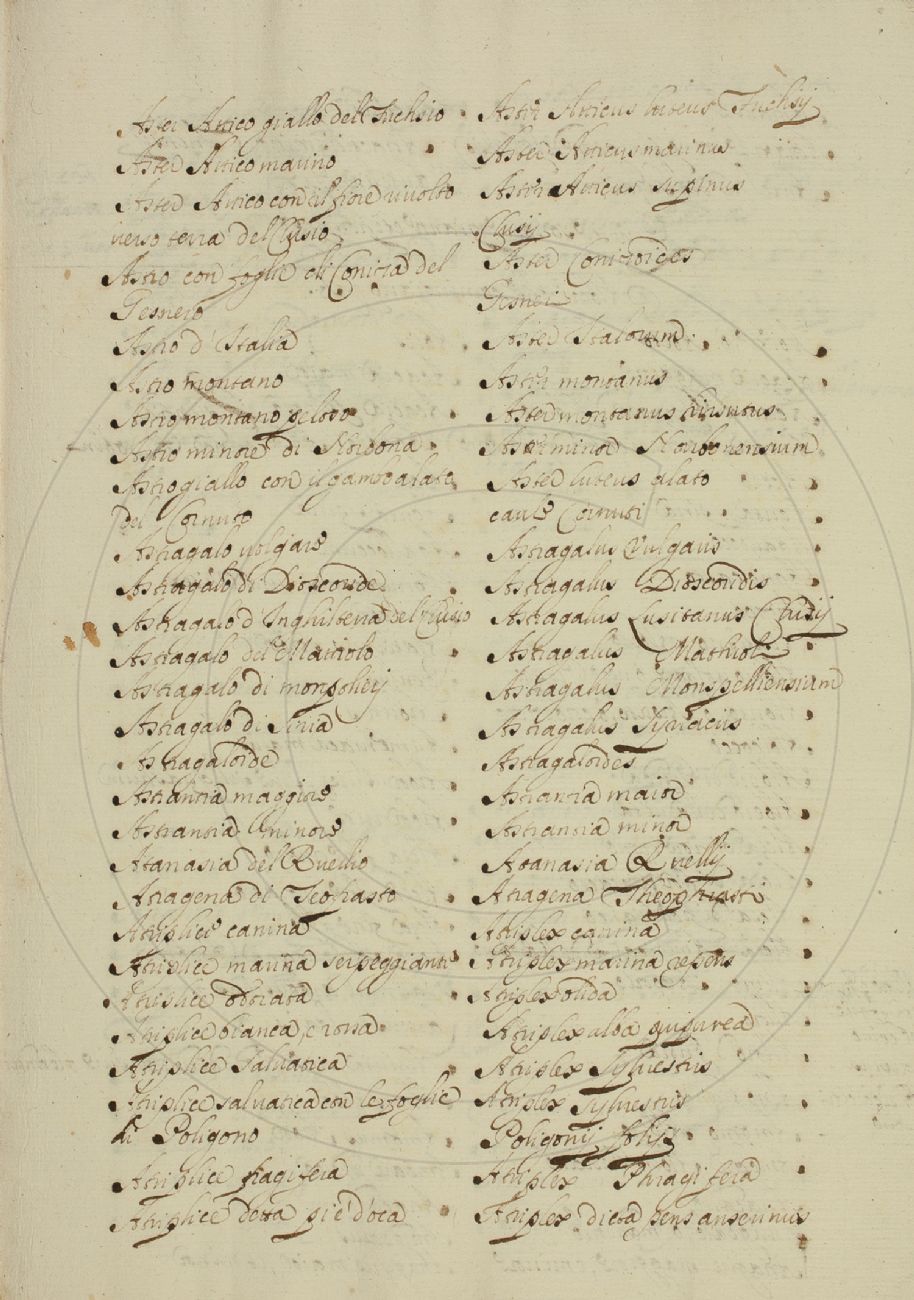 Aster Attico giallo del Fuchsio Aster Atticus luteus Fuchsij
Aster Attico marino Aster Atticus marinus
Aster Attico con il fiore rivolto Aster Atticus supinus
verso terra del Clusio Clusij
Astro con foglie di Coniza del Aster Conizoides
Gesnero Gesneri
Astro d'Italia Aster Italorum
Astro montano Aster montanus
Astro montano peloso Aster montanus hirsutus
Astro minore di Narbona Aster minor Narbonensium
Astro giallo con il gambo alato Aster luteus alato
del Cornuto caule Cornuti
Astragalo volgare Astragalus Vulgaris
Astragalo di Dioscoride Astragalus Dioscoridis
Astragalo d'Inghilterra del Clusio Astragalus Lusitanus Clusij
Astragalo del Mattiolo Astragalus Mathioli
Astragalo di monpoliej Astragalus Monspelliensium
Astragalo di Siria Astragalus Syriacus
Astragaloide Astragaloides
Astrantia maggiore Astrantia maior
Astrantia minore Astrantia minor
Atanasia del Ruellio Atanasia Ruellij
Atragena di Teofrasto Atragena Theophrasti
Atriplice canina Atriplex canina
Atriplice marina serpeggiante Atriplex marina repens
Atriplice odorata Atriplex olida
Atriplice bianca, e rossa Atriplex alba purpurea
Atriplice salvatica Atriplex Sylvestris
Atriplice salvatica con le foglie Atriplex Sylvestris
di Poligono Poligonij folijs
Atriplice fragifera Atriplex Phragifera
Atriplice detta piè d'oca Atriplex dicta pens anserinus